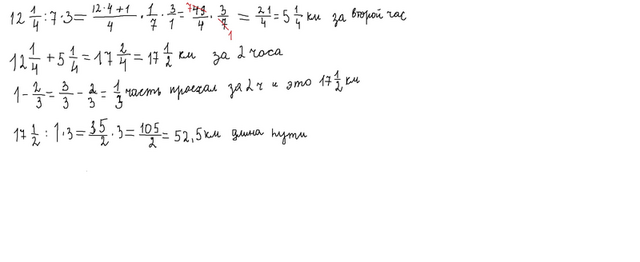 12 1/4 : 7 · 3 = (12·4+1)/4 · 1/7 · 3/1 = 49/4 · 3/7 = 21/4 = 5 1/4 км за второй час
12 1/4 + 5 1/4 = 17 2/4 = 17 1/2 км за 2 часа
1 - 2/3 = 3/3 - 2/3 = 1/3 часть проехал за 2 ч и это 17 1/2 км
17 1/2 : 1 · 3 = 35/2 · 3 = 105/2 = 52,5 км длина пути